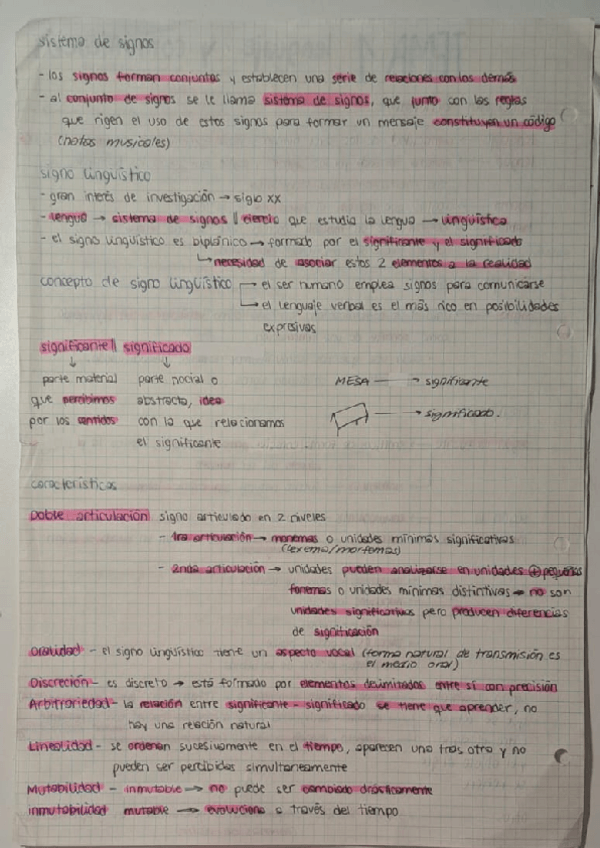 sistema de signos
- los signos forman conjuntos y establecen una serie de relaciones con los demás
- al conjunto de signos se le llama sistema de signos, que junto con las reglas
que rigen el uso de estos signos para formar un mensaje constituyen un código
(notas musicales)
signo lingüístico
- gran interés de investigación → siglo XX
- Lengua → sistema de signos || ciencia que estudia la lengua → lingüística
- el signo lingüístico es biplánico → formado por el significante y el significado
↳ necesidad de asociar estos 2 elementos a la realidad
concepto de signo lingüístico → el ser humano emplea signos para comunicarse
↳ el lenguaje verbal es el más rico en posibilidades
expresivas
significante || significado
↓ ↓
parte material parte social o
que percibimos abstracta, idea
por los sentidos con la que relacionamos
el significante
MESA → significante
→ significado.
características
Doble articulación signo articulado en 2 niveles
- 1ra articulación → monemas o unidades mínimas significativas
(lexema/morfemas)
- 2nda articulación → unidades pueden analizarse en unidades + pequeñas
fonemas o unidades mínimas distintivas → no son
unidades significativas pero producen diferencias
de significación
Oralidad - el signo lingüístico tiene un aspecto vocal (forma natural de transmisión es
el medio oral)
Discreción - es discreto → está formado por elementos delimitados entre sí con precisión
Arbitrariedad - la relación entre significante - significado se tiene que aprender, no
hay una relación natural
Linealidad - se ordenan sucesivamente en el tiempo, aparecen uno tras otro y no
pueden ser percibidos simultaneamente
Mutabilidad - inmutable → no puede ser cambiado drásticamente
inmutabilidad mutable → evoluciona a través del tiempo